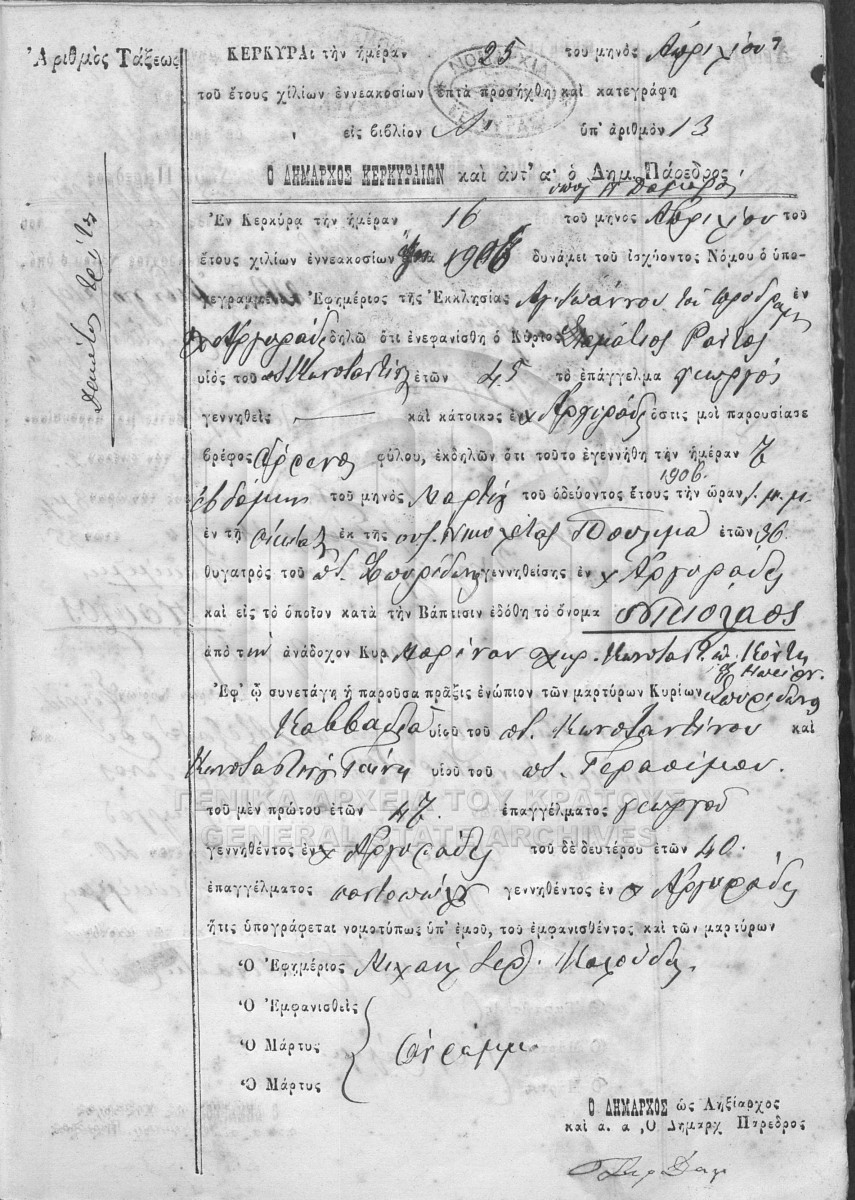 Ἀριθμὸς Τάξεως
δέκατος τρίτος
ΚΕΡΚΥΡΑι τὴν ἡμέραν 25 τοῦ μηνὸς Ἀπριλίου 7
τοῦ ἔτους χίλίων ἐννεακοσίων ἑπτὰ προσήχθη καὶ κατεγράφη
εἰς βιβλίον Α' ὑπ' ἀριθμὸν 13
ΝΟΜΑΡΧΙΑ ΚΕΡΚΥΡΑΣ
Ο ΔΗΜΑΡΧΟΣ ΚΕΡΚΥΡΑΙΩΝ καὶ ἀντ' α' ὁ Δημ. Πάρεδρος
Ἐν Κερκύρᾳ τὴν ἡμέραν 16 τοῦ μηνος Ἀπριλίου τοῦ
ἔτους χιλίων ἐννεακοσίων 1906 δυνάμει τοῦ ἰσχύοντος Νόμου ὁ ὑπο-
γεγραμμένος Ἐφημέριος τῆς Ἐκκλησίας Ἁγ. Ἰωάννου τοῦ Προδρόμου ἐν
χ. Ἀργυράδες δηλῶ ὅτι ἐνεφανίσθη ὁ Κύριος Σταμάτιος Ράπτης
υἱὸς τοῦ ποτ. Κωνσταντίνου ἐτῶν 45 τὸ ἐπάγγελμα γεωργὸς
γεννηθεὶς — καὶ κάτοικος ἐν χ. Ἀργυράδες ὅστις μοὶ παρουσίασε
βρέφος ἄρρενος φύλου, ἐκδηλῶν ὅτι τοῦτο ἐγεννήθη τὴν ἡμέραν 7
ἑβδόμην τοῦ μηνὸς Μαρτίου τοῦ ὁδεύοντος ἔτους 1906 τὴν ὥραν 1 μ.μ.
ἐν τῇ οἰκίᾳ ἐκ τῆς συζ. Νικολέτας ἐτῶν 36
θυγατρὸς τοῦ ποτ. Σπυρίδωνος γεννηθείσης ἐν χ. Ἀργυράδες
καὶ εἰς τὸ ὁποῖον κατὰ τὴν Βάπτισιν ἐδόθη τὸ ὄνομα Νικόλαος
ἀπὸ τὴν ἀνάδοχον Κυρ Μαρίναν χηρ. Κωνσταντ. ποτ. Κόντη
ἐξ Ἠπείρου
Ἐφ' ᾧ συνετάγη ἡ παροῦσα πρᾶξις ἐνώπιον τῶν μαρτύρων Κυρίων Σπυρίδωνος
Καββαδία υἱοῦ τοῦ ποτ. Κωνσταντίνου καὶ
Κωνσταντίνου υἱοῦ τοῦ ποτ. Γερασίμου.
ΓΕΝΙΚΑ ΑΡΧΕΙΑ ΤΟΥ ΚΡΑΤΟΥΣ
τοῦ μὲν πρώτου ἐτῶν 47 ἐπαγγέλματος γεωργοῦ
GENERAL STATE ARCHIVES
γεννηθέντος ἐν χ Ἀργυράδες τοῦ δὲ δευτέρου ἐτῶν 40.
ἐπαγγέλματος παντοπώλου γεννηθέντος ἐν χ Ἀργυράδες
ἥτις ὑπογράφεται νομοτύπως ὑπ' ἐμοῦ, τοῦ ἐμφανισθέντος καὶ τῶν μαρτύρων
Ὁ Ἐφημέριος Μιχαὴλ Ἱερ. Καλούδης
Ὁ Ἐμφανισθεὶς
Ὁ Μάρτυς ἀγράμμ.
Ὁ Μάρτυς
Ο ΔΗΜΑΡΧΟΣ ὡς Ληξίαρχος
καὶ α. α Ὁ Δημαρχ Πάρεδρος